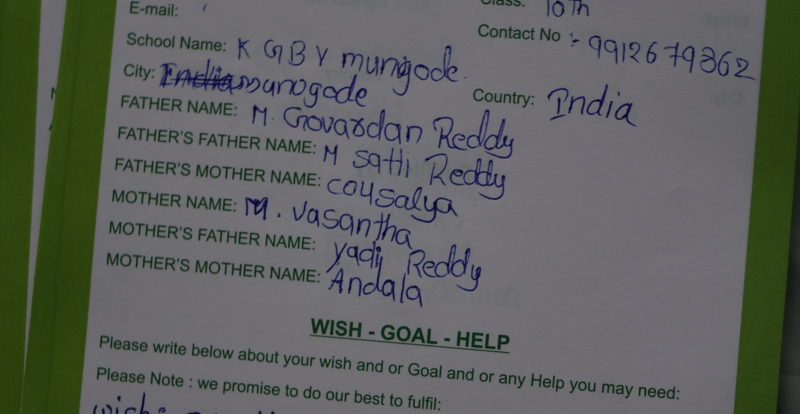 Class: 10th
E-mail:
Contact No :- 9912679362
School Name: K G B V mungode.
City: India munogode
Country: India
FATHER NAME: M. Govardan Reddy
FATHER'S FATHER NAME: M Satti Reddy
FATHER'S MOTHER NAME: cousalya
MOTHER NAME: M. Vasantha
MOTHER'S FATHER NAME: yadij Reddy
MOTHER'S MOTHER NAME: Andala
WISH - GOAL - HELP
Please write below about your wish and or Goal and or any Help you may need:
Please Note : we promise to do our best to fulfil: